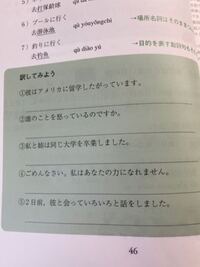 5) ボ
去打保齢球
6) プールに行く
→場所名詞はそのまま
去游泳池
qù yóuyǒngchí
7) 釣りに行く
→目的を表す動詞句も
去钓鱼
qù diào yú
訳してみよう
①彼はアメリカに留学したがっています。
②誰のことを怒っているのですか。
③私と姉は同じ大学を卒業しました。
④ごめんなさい。私はあなたの力になれません。
⑤2日前、彼と会っていろいろと話をしました。
46